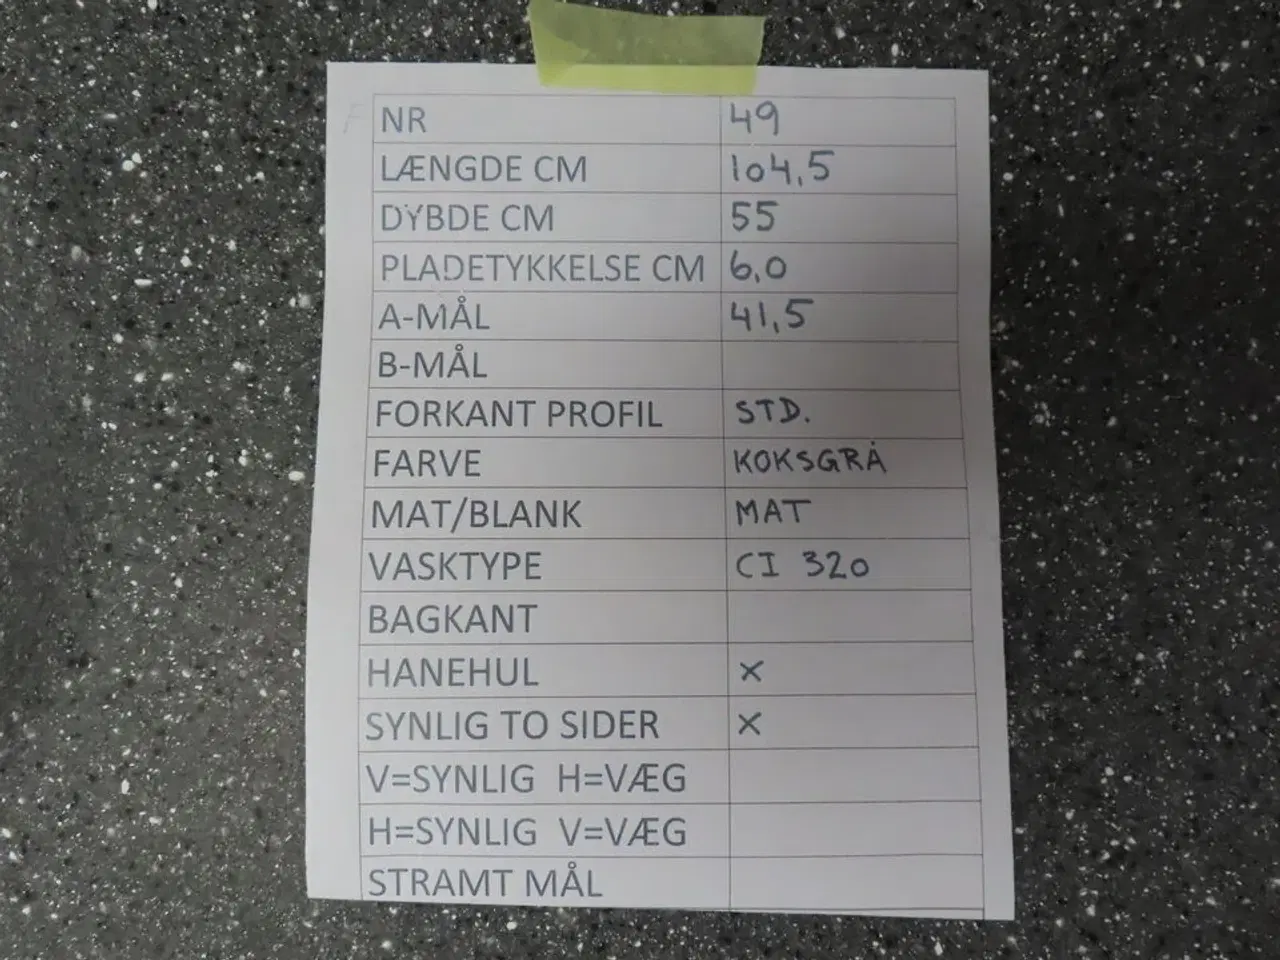 NR 49
LÆNGDE CM 104,5
DYBDE CM 55
PLADETYKKELSE CM 6,0
A-MÅL 41,5
B-MÅL
FORKANT PROFIL STD.
FARVE KOKSGRÅ
MAT/BLANK MAT
VASKTYPE CI 320
BAGKANT
HANEHUL X
SYNLIG TO SIDER X
V=SYNLIG H=VÆG
H=SYNLIG V=VÆG
STRAMT MÅL